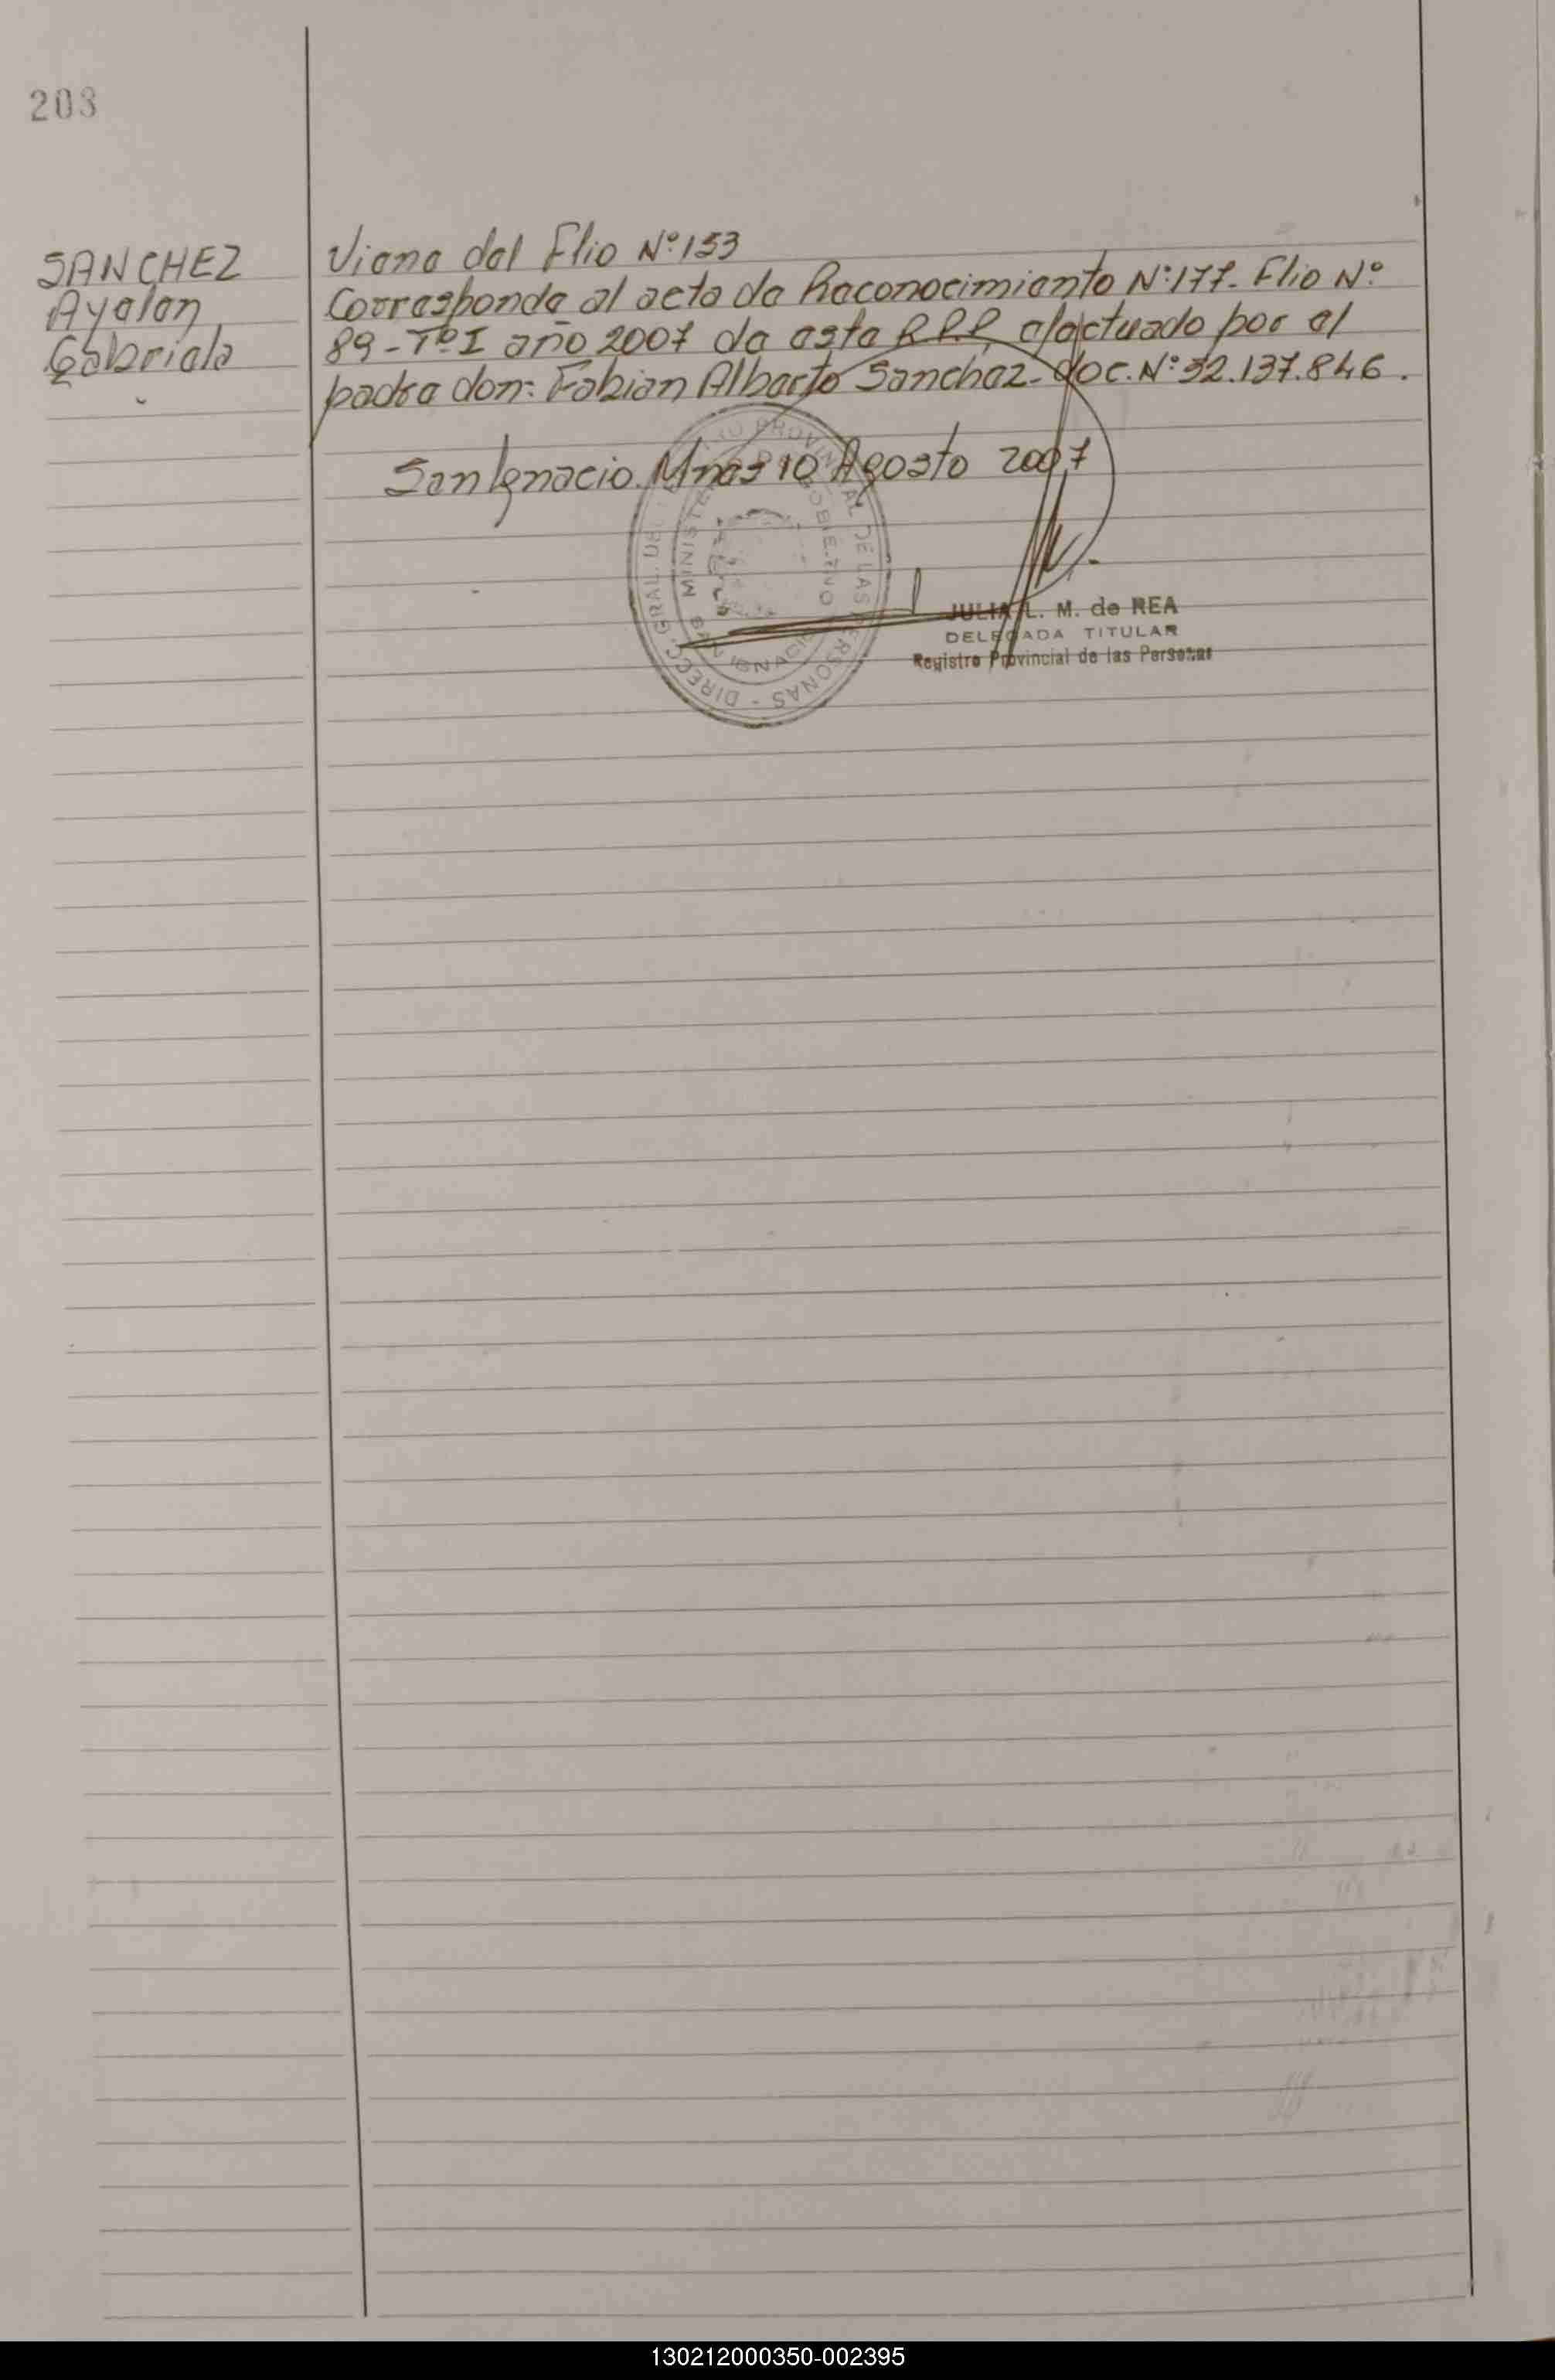 203
SANCHEZ
Ayelen
Gabriela
Viene del Flio Nº 153
Corresponde al acta de Reconocimiento Nº: 177. Flio Nº
89 - Tº I año 2007 de esta R.P.P. efectuado por el
padre don: Fabian Alberto Sanchez - doc. Nº: 32.137.846.
San Ignacio Mnes 10 Agosto 2007
PROVINCIAL DE LAS PERSONAS - DIRECC. GRAL. DEL
MINISTERIO DE GOBIERNO
SAN IGNACIO
JULIA L. M. de REA
DELEGADA TITULAR
Registro Provincial de las Personas
130212000350-002395